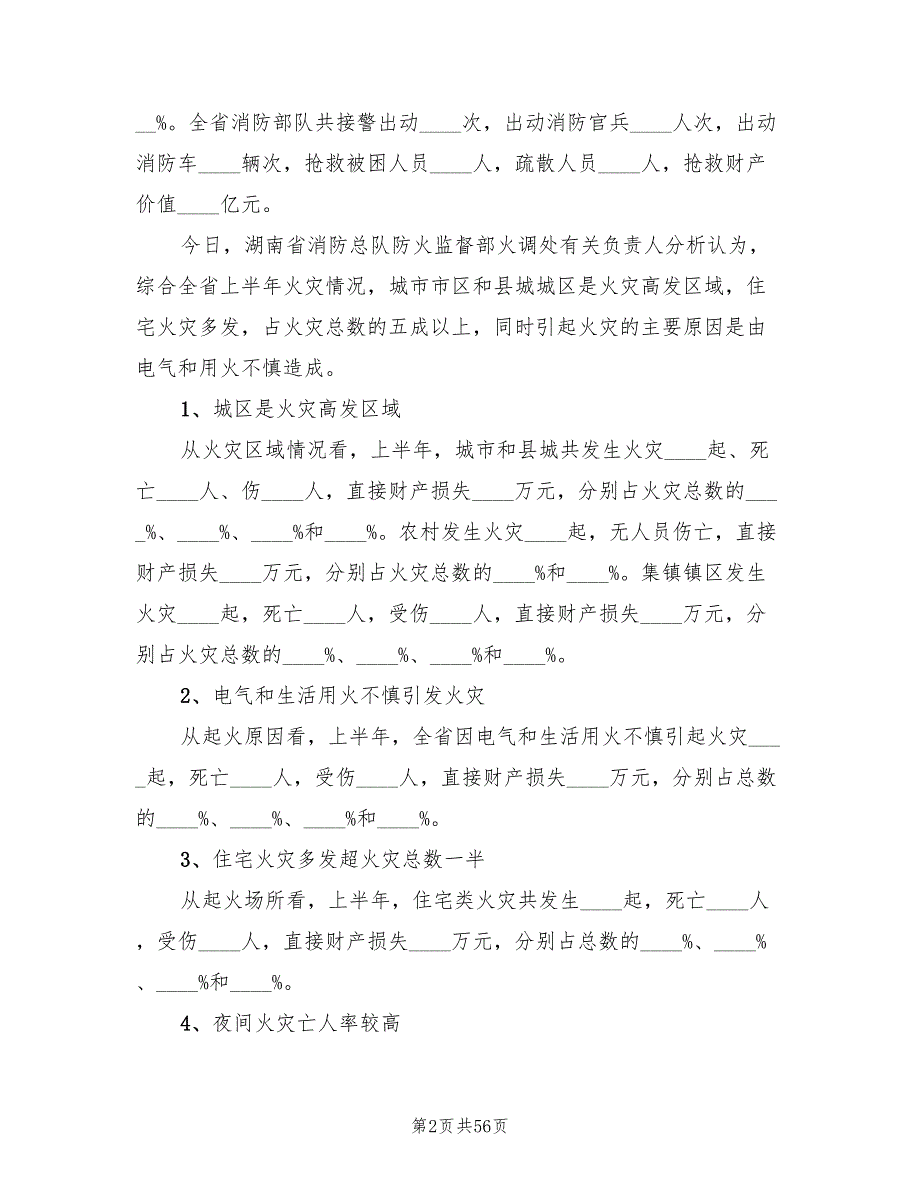 __%。全省消防部队共接警出动____次，出动消防官兵____人次，出动
消防车____辆次，抢救被困人员____人，疏散人员____人，抢救财产
价值____亿元。
今日，湖南省消防总队防火监督部火调处有关负责人分析认为，
综合全省上半年火灾情况，城市市区和县城城区是火灾高发区域，住
宅火灾多发，占火灾总数的五成以上，同时引起火灾的主要原因是由
电气和用火不慎造成。
1、城区是火灾高发区域
从火灾区域情况看，上半年，城市和县城共发生火灾____起、死
亡____人、伤____人，直接财产损失____万元，分别占火灾总数的___
_%、____%、____%和____%。农村发生火灾____起，无人员伤亡，直接
财产损失____万元，分别占火灾总数的____%和____%。集镇镇区发生
火灾____起，死亡____人，受伤____人，直接财产损失____万元，分
别占火灾总数的____%、____%、____%和____%。
2、电气和生活用火不慎引发火灾
从起火原因看，上半年，全省因电气和生活用火不慎引起火灾___
_起，死亡____人，受伤____人，直接财产损失____万元，分别占总数
的____%、____%、____%和____%。
3、住宅火灾多发超火灾总数一半
从起火场所看，上半年，住宅类火灾共发生____起，死亡____人
，受伤____人，直接财产损失____万元，分别占总数的____%、____%
、____%和____%。
4、夜间火灾亡人率较高
第2页共56页